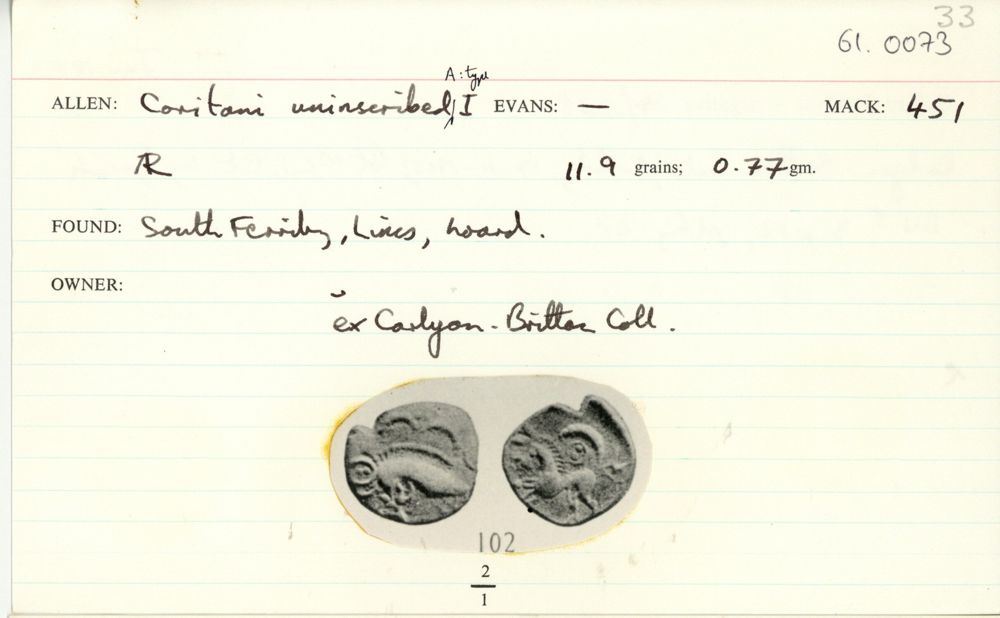 33
61. 0073
A: type
ALLEN: Coritani uninscribed, I EVANS: — MACK: 451
AR 11.9 grains; 0.77 gm.
FOUND: South Ferriby, Lincs, hoard.
OWNER:
ex Carlyon-Britton Coll.
102
2
1